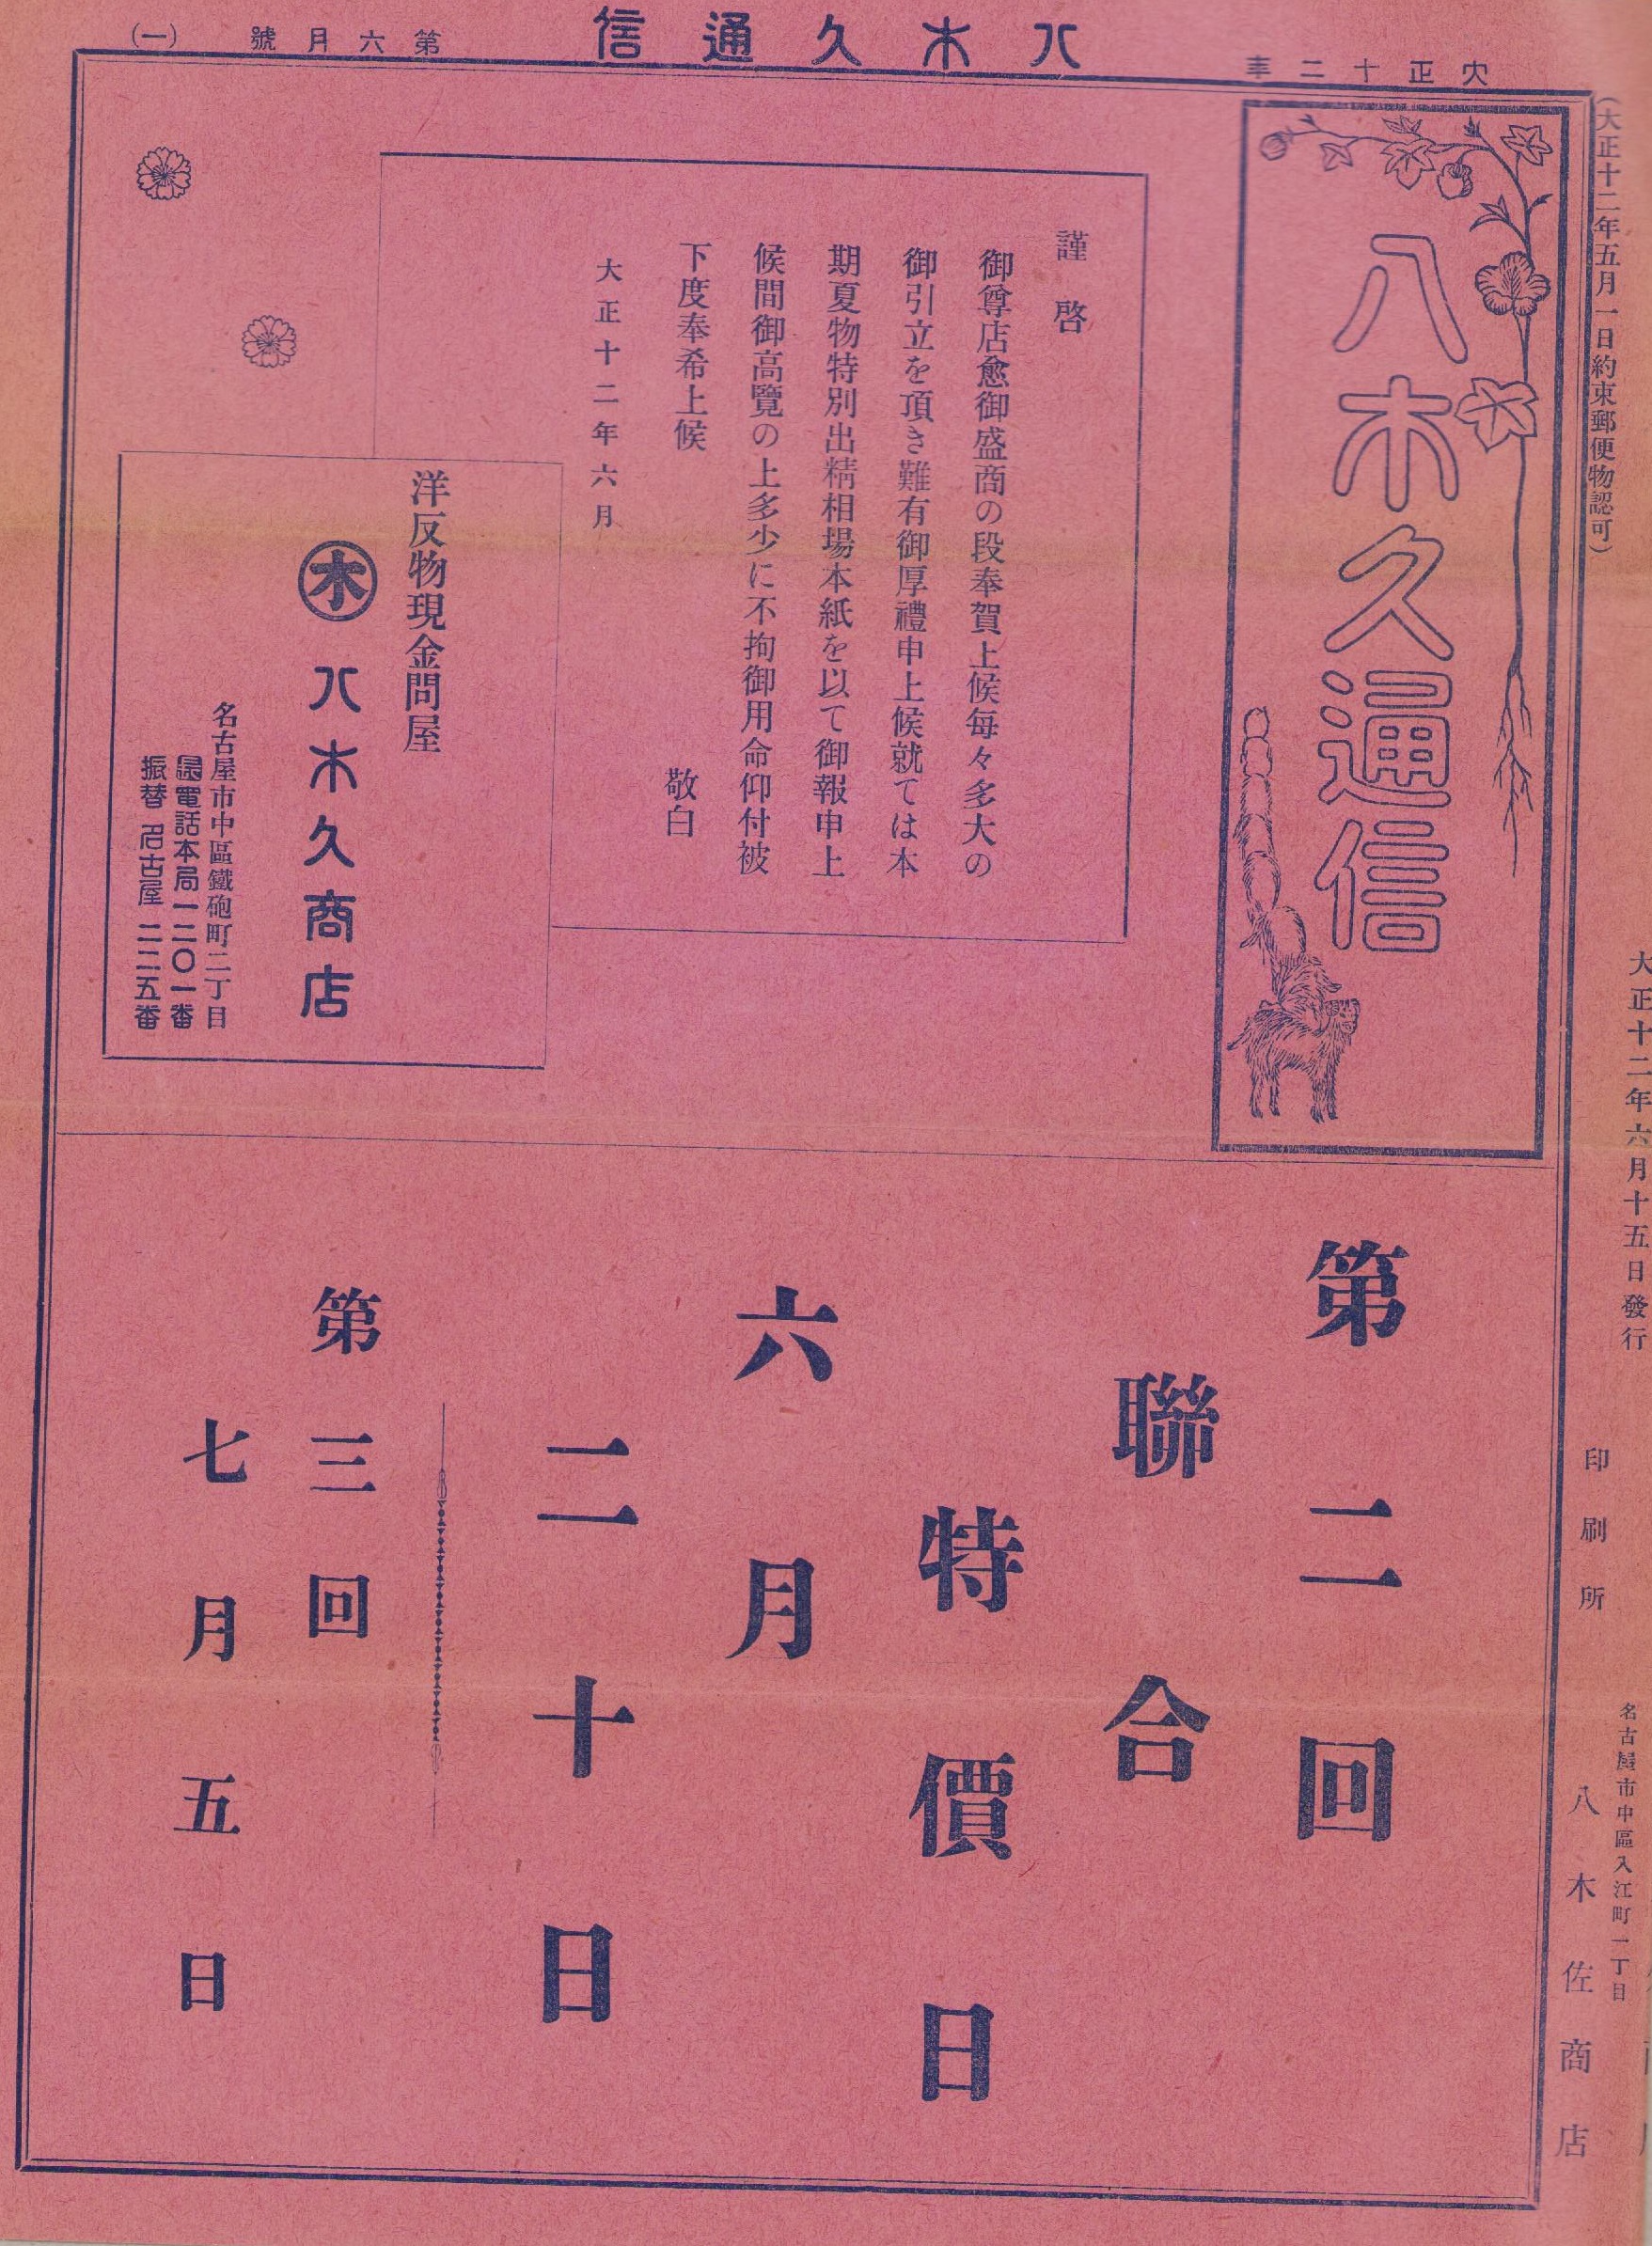 大正十二年
八木久通信
第六月號
(一)
(大正十二年五月一日約束郵便物認可)
大正十二年六月十五日發行
印刷所
名古屋市中區入江町一丁目
八木佐商店
八木久通信
謹啓
御尊店愈御盛商の段奉賀上候毎々多大の
御引立を頂き難有御厚禮申上候就ては本
期夏物特別出精相場本紙を以て御報申上
候間御高覽の上多少に不拘御用命仰付被
下度奉希上候
敬白
大正十二年六月
洋反物現金問屋
木
八木久商店
名古屋市中區鐵砲町二丁目
電話本局一二〇一番
振替名古屋二二五番
第二回
聯合
特價日
六月
二十日
第三回
七月五日